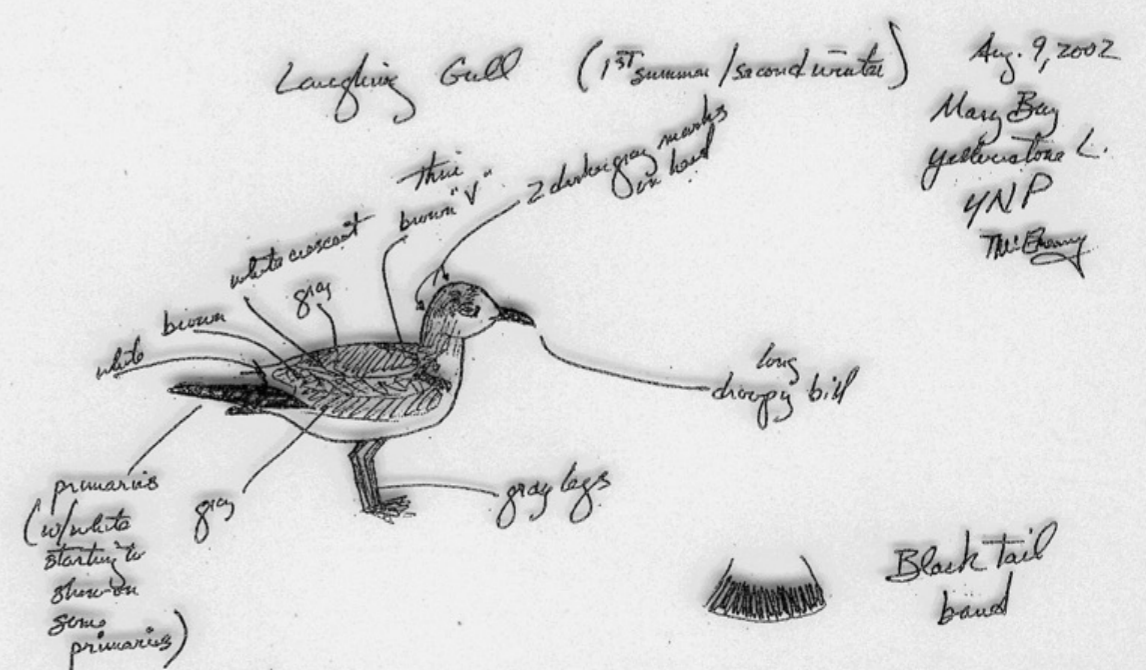 Laughing Gull (1ST summer/second winter)
Aug. 9, 2002
Mary Bay
Yellowstone L.
YNP
TMcEneaney
2 darker gray marks
on head
brown "V"
white crescent
gray
brown
white
long
droopy bill
gray legs
gray
primaries
(w/white
starting to
show on
some
primaries)
Black tail
band